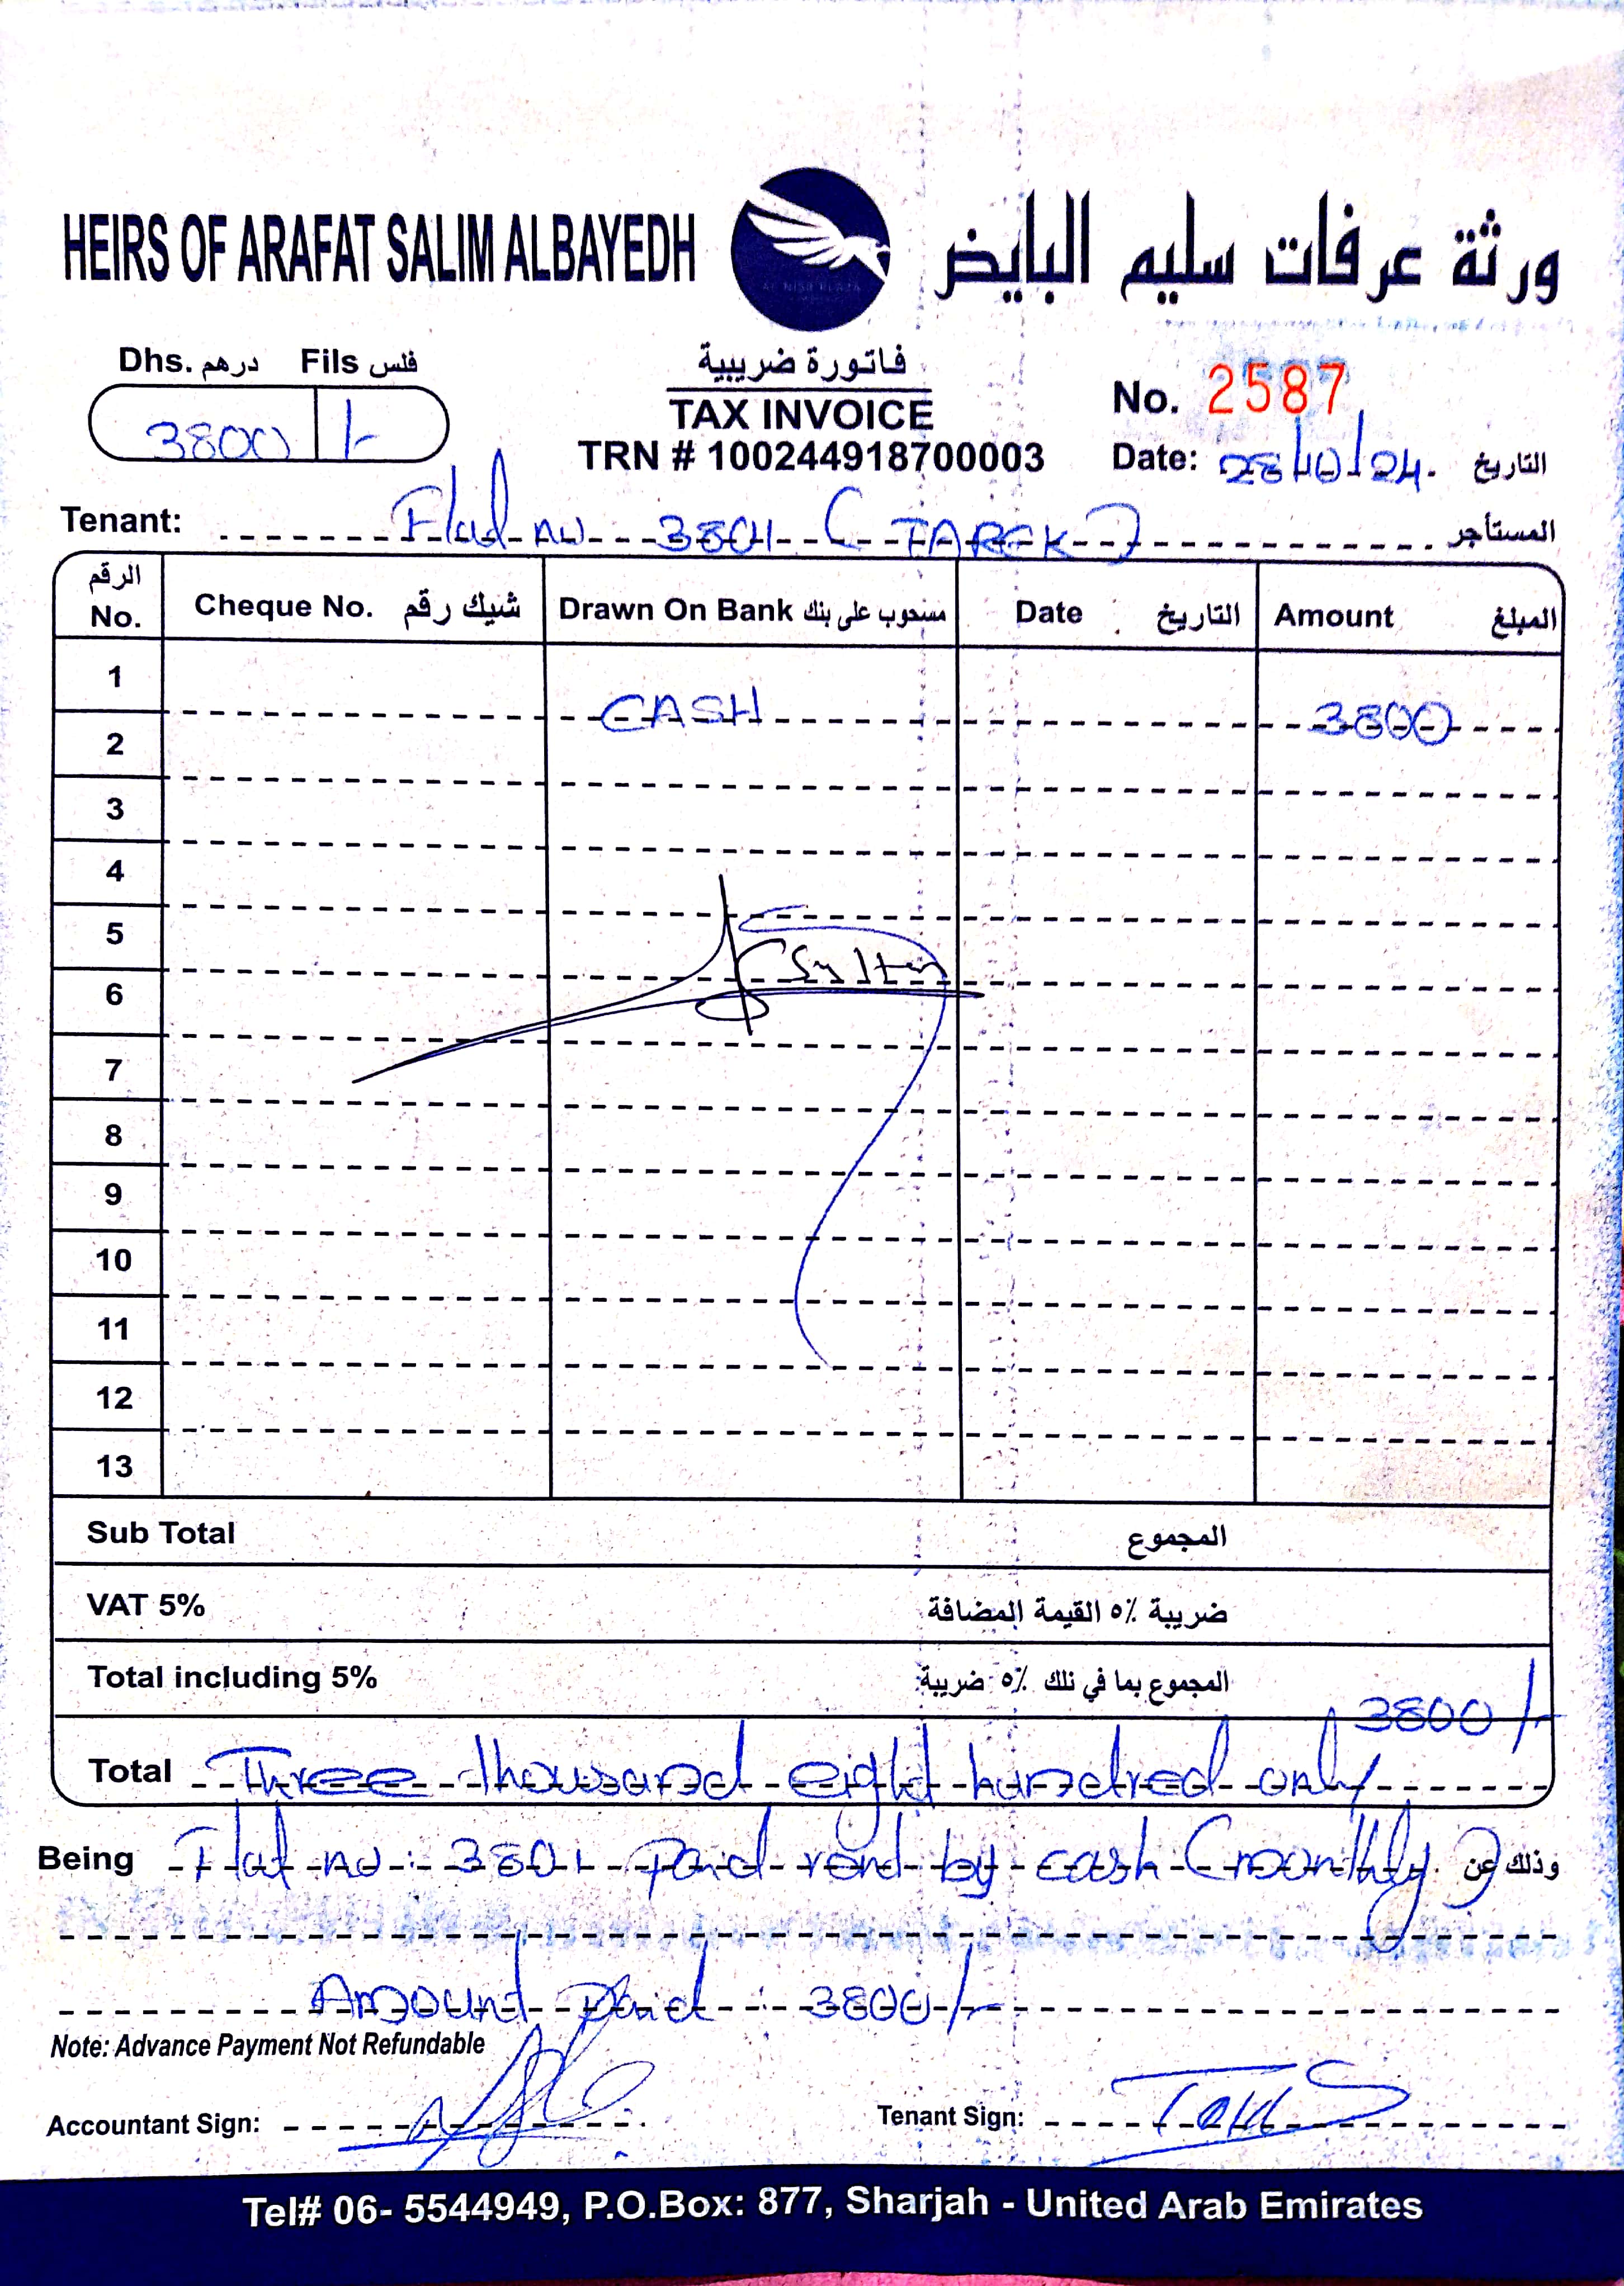 HEIRS OF ARAFAT SALIM ALBAYEDH
ورثة عرفات سليم البايض
AL NISR PLAZA
Dhs. درهم Fils فلس
3800 /-
فاتورة ضريبية
TAX INVOICE
TRN # 100244918700003
No. 2587
Date: 28/10/24. التاريخ
Tenant: Flat no 3801 (TAREK) المستأجر
الرقم No. Cheque No. شيك رقم Drawn On Bank مسحوب على بنك Date التاريخ Amount المبلغ
1
CASH 3800
2
3
4
5
Sultan
6
7
8
9
10
11
12
13
Sub Total المجموع
VAT 5% ضريبة ٥٪ القيمة المضافة
Total including 5% المجموع بما في ذلك ٥٪ ضريبة 3800/-
Total Three thousand eight hundred only
Being Flat no: 3801 paid rent by cash (monthly) وذلك عن
Amount paid : 3800/-
Note: Advance Payment Not Refundable
Accountant Sign:
Tenant Sign:
Tel# 06- 5544949, P.O.Box: 877, Sharjah - United Arab Emirates